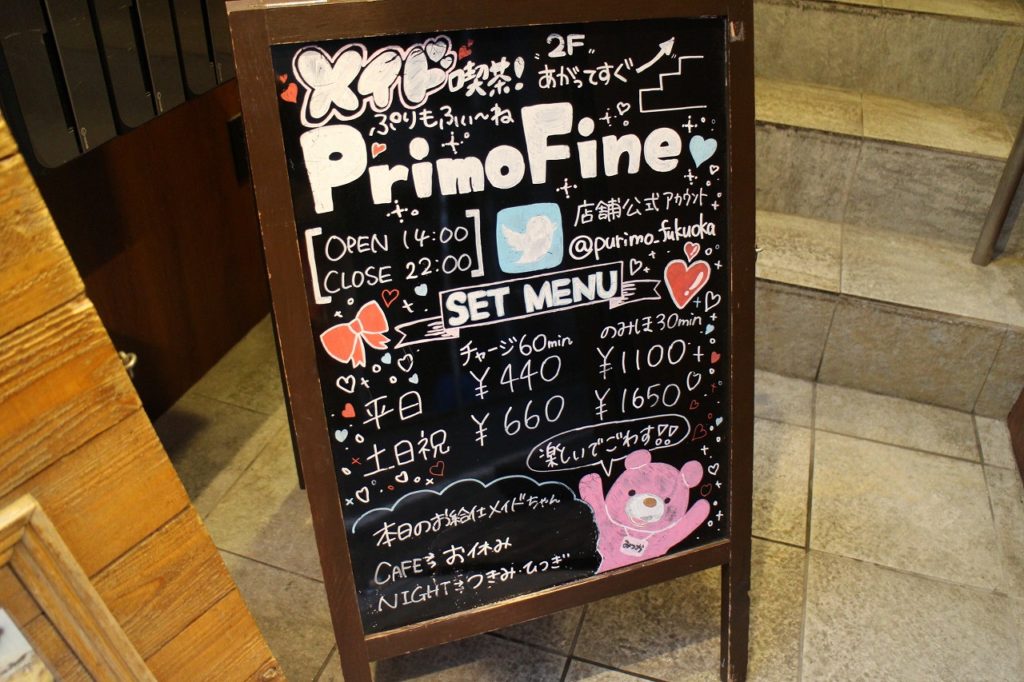 メイド喫茶! 2F
あがってすぐ
ぷりもふぃ〜ね
PrimoFine
店舗公式アカウント
@purimo_fukuoka
OPEN 14:00
CLOSE 22:00
SET MENU
チャージ60min のみほ30min
平日 ¥440 ¥1100
土日祝 ¥660 ¥1650
楽しいでごわす!!
本日のお給仕メイドちゃん
CAFE お休み
NIGHT つきみ・ひつぎ